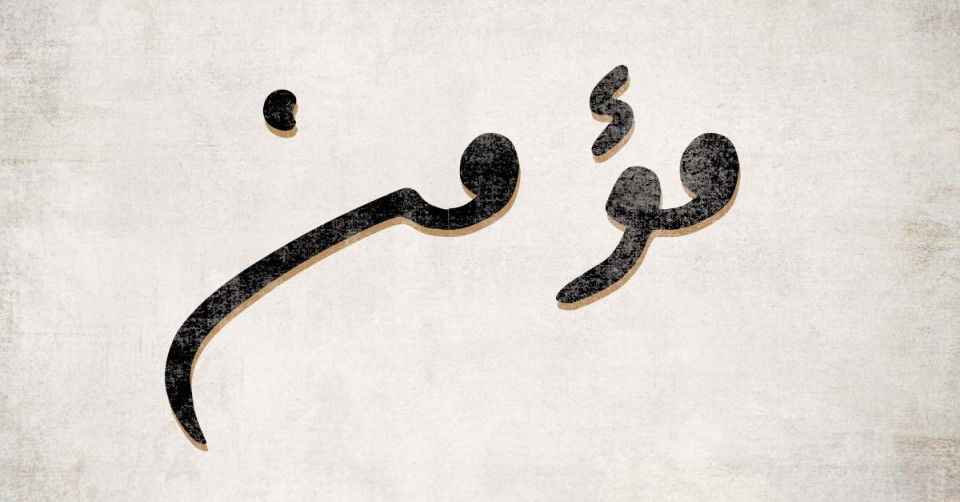 مؤمن